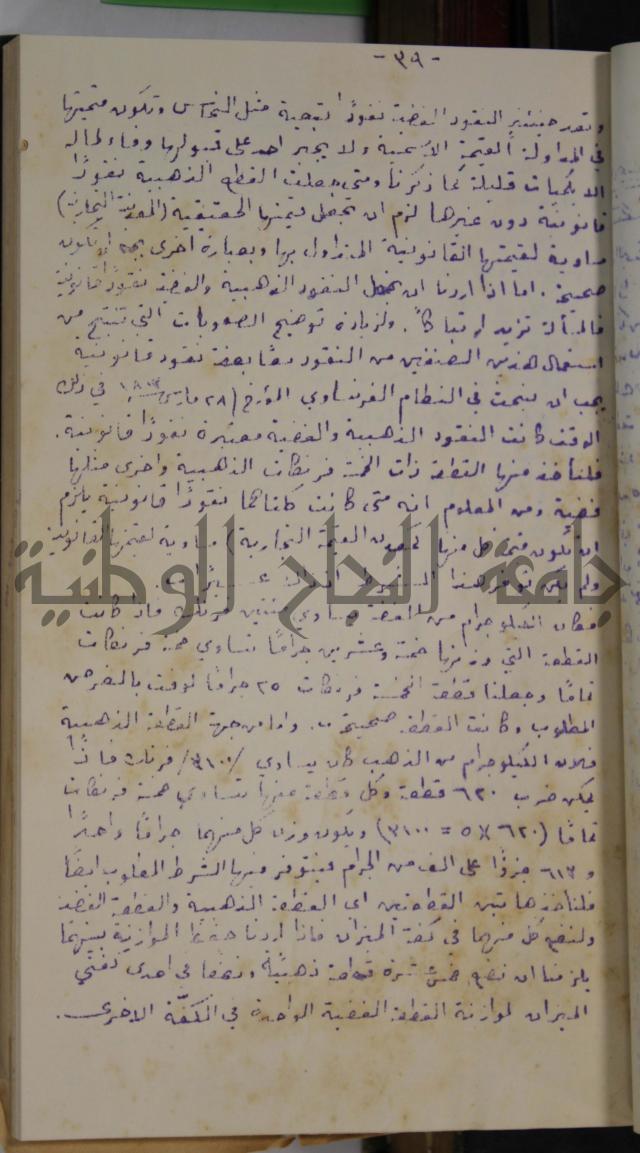 - ٣٩ -
وتعد حينئذٍ النقود الفضية نقودًا توجية مثل النحاس وتكون قيمتها
في المداولة القيمة الاسمية ولا يجبر احد على قبولها وفاء لماله
الا بكميات قليلة كما ذكرنا ومتى جعلت القطع الذهبية نقودًا
قانونية دون غيرها لزم ان تجعل قيمتها الحقيقية (المعدنية التجارية)
مساوية لقيمتها القانونية المتداول بها وبعبارة اخرى يجب ان تكون
صحيحة. اما اذا اردنا ان نجعل النقود الذهبية والفضية نقودًا قانونية
فالمسألة تزيد ارتباكًا. ولزيادة توضيح الصعوبات التي تنتج من
استعمال هذين الصنفين من النقود معًا بصفة نقود قانونية
يجب ان نبحث في النظام الفرنساوي المؤرخ (٢٨ مارس في ذلك
الوقت كانت النقود الذهبية والفضية معتبرة نقودًا قانونية.
فلنأخذ منها القطعة ذات الخمسة فرنكات الذهبية واخرى مثلها
فضية ومن المعلوم انه متى كانت كلتاهما نقودًا قانونية يلزم
ان تكون قيمة كل منها (القيمة التجارية) مساوية لقيمتها القانونية
ولم يكن توفر هذا الشرط اذ ذاك عسيرًا
فكان الكيلوجرام من الفضة يساوي مئتين فرنك فاذا كانت
القطعة التي وزنها خمسة وعشرين جرامًا تساوي خمسة فرنكات
تمامًا وجعلنا قطعة الخمسة فرنكات ٢٥ جرامًا لوفت بالغرض
المطلوب وكانت القطعة صحيحة. واما من جهة القطعة الذهبية
فلان الكيلوجرام من الذهب كان يساوي /٣١٠٠/ فرنك فاذًا
يمكن ضرب ٦٢٠ قطعة وكل قطعة منها تساوي خمسة فرنكات
تمامًا (٦٢٠ × ٥ = ٣١٠٠) ويكون وزن كل منها جرامًا واحدًا
و ٦١٣ جزؤًا على الف من الجرام فيتوفر فيها الشرط المطلوب ايضًا
فلنأخذ هاتين القطعتين اي القطعة الذهبية والقطعة الفضية
ولنضع كل منهما في كفة الميزان فاذا اردنا حفظ الموازنة بينهما
يلزمنا ان نضع خمس عشرة قطعة ذهبية ونصفا في احدى كفتي
الميزان لموازنة القطعة الفضية الواحدة في الكفة الاخرى.
جامعة النجاح الوطنية